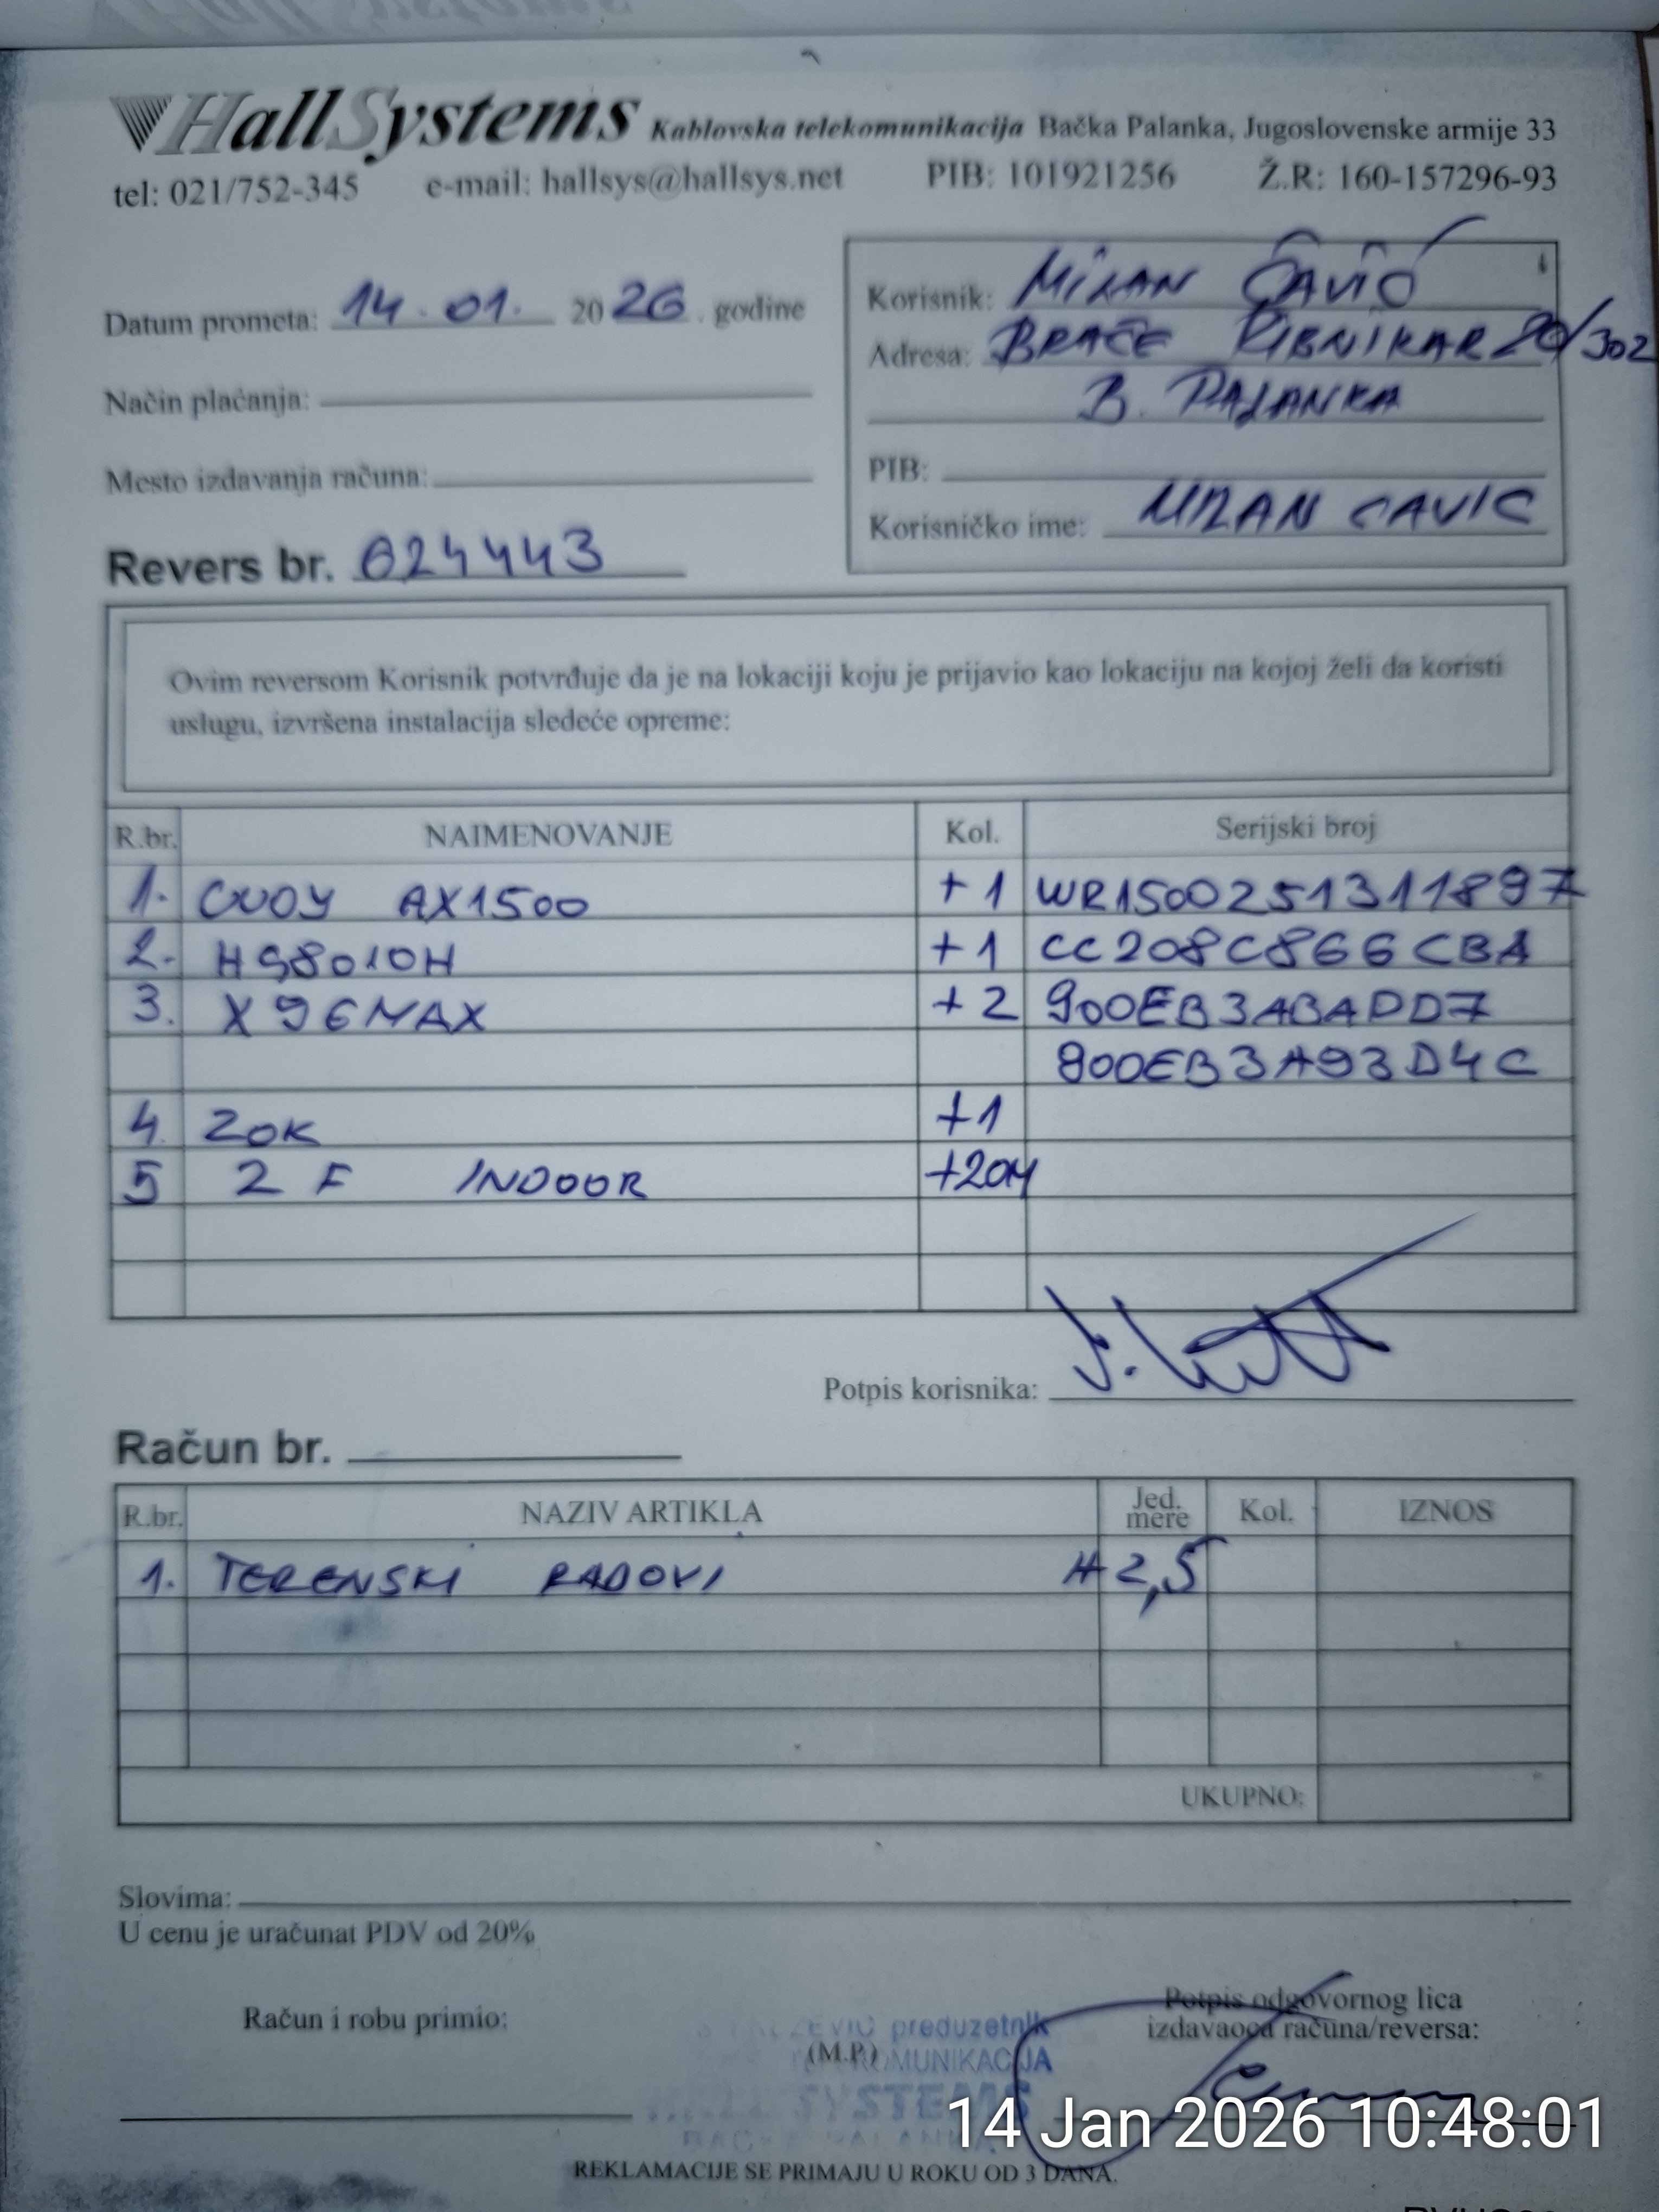 HallSystems Kablovska telekomunikacija Bačka Palanka, Jugoslovenske armije 33
tel: 021/752-345 e-mail: hallsys@hallsys.net PIB: 101921256 Ž.R: 160-157296-93
Datum prometa: 14.01. 2026. godine
Način plaćanja:
Mesto izdavanja računa:
Revers br. 024443
Korisnik: MILAN ČAVIĆ
Adresa: BRAĆE RIBNIKAR 20/302
B. PALANKA
PIB:
Korisničko ime: MILAN CAVIC
Ovim reversom Korisnik potvrđuje da je na lokaciji koju je prijavio kao lokaciju na kojoj želi da koristi
uslugu, izvršena instalacija sledeće opreme:
R.br. NAIMENOVANJE Kol. Serijski broj
1. CUDY AX1500 +1 WR1500251311897
2. HG8010H +1 CC208C866CBA
3. X96MAX +2 900EB3ABADD7
900EB3A93D4C
4 ZOK +1
5 2 F INDOOR +20M
Potpis korisnika:
Račun br.
R.br. NAZIV ARTIKLA Jed. mere Kol. IZNOS
1. TERENSKI RADOVI H 2,5
UKUPNO:
Slovima:
U cenu je uračunat PDV od 20%
Račun i robu primio:
preduzetnik
(M.P.)
KOMUNIKACIJA
SYSTEMS
BAČKA PALANKA
Potpis odgovornog lica
izdavaoca računa/reversa:
14 Jan 2026 10:48:01
REKLAMACIJE SE PRIMAJU U ROKU OD 3 DANA.